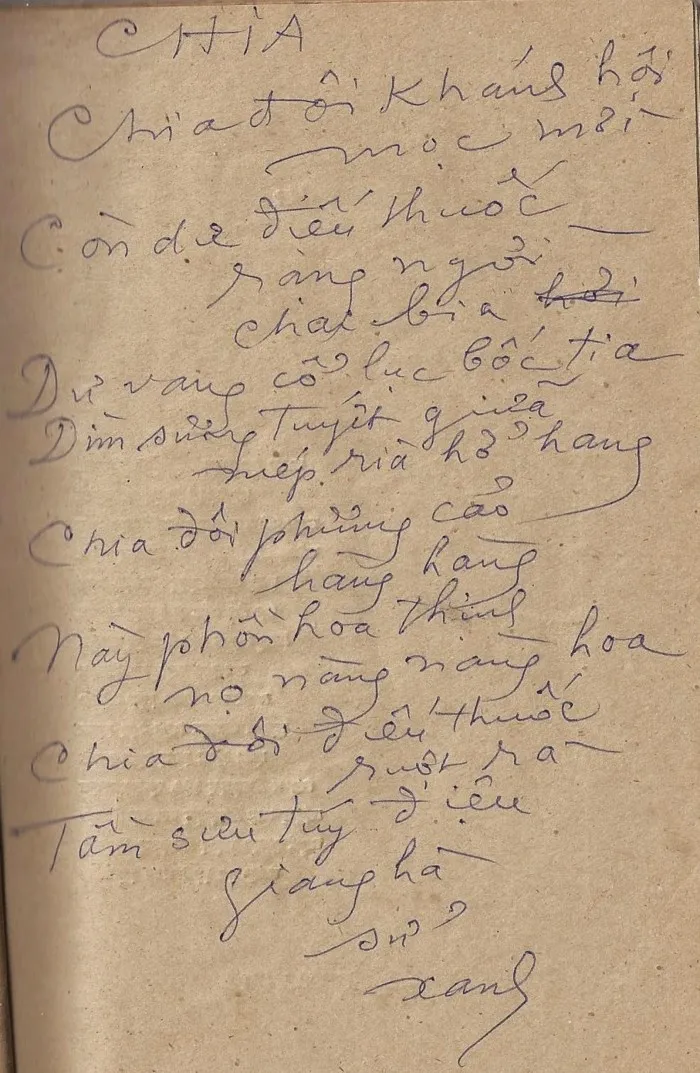 CHIA
Chia đôi Kháng hôi
mọc mối
Còn dư điếu thuốc
ràng người
chai bia hỏi
Dư vang cổ lục bốc tia
Dìm sừng tuyết giữa
mép rìa hở hang
Chia đôi phừng cảo
hàng hàng
Này phồn hoa thịnh
nọ nàng nàng hoa
Chia đôi điếu thuốc
ruột rà
Tầm sưu túy điệu
giang hà
sử
xanh